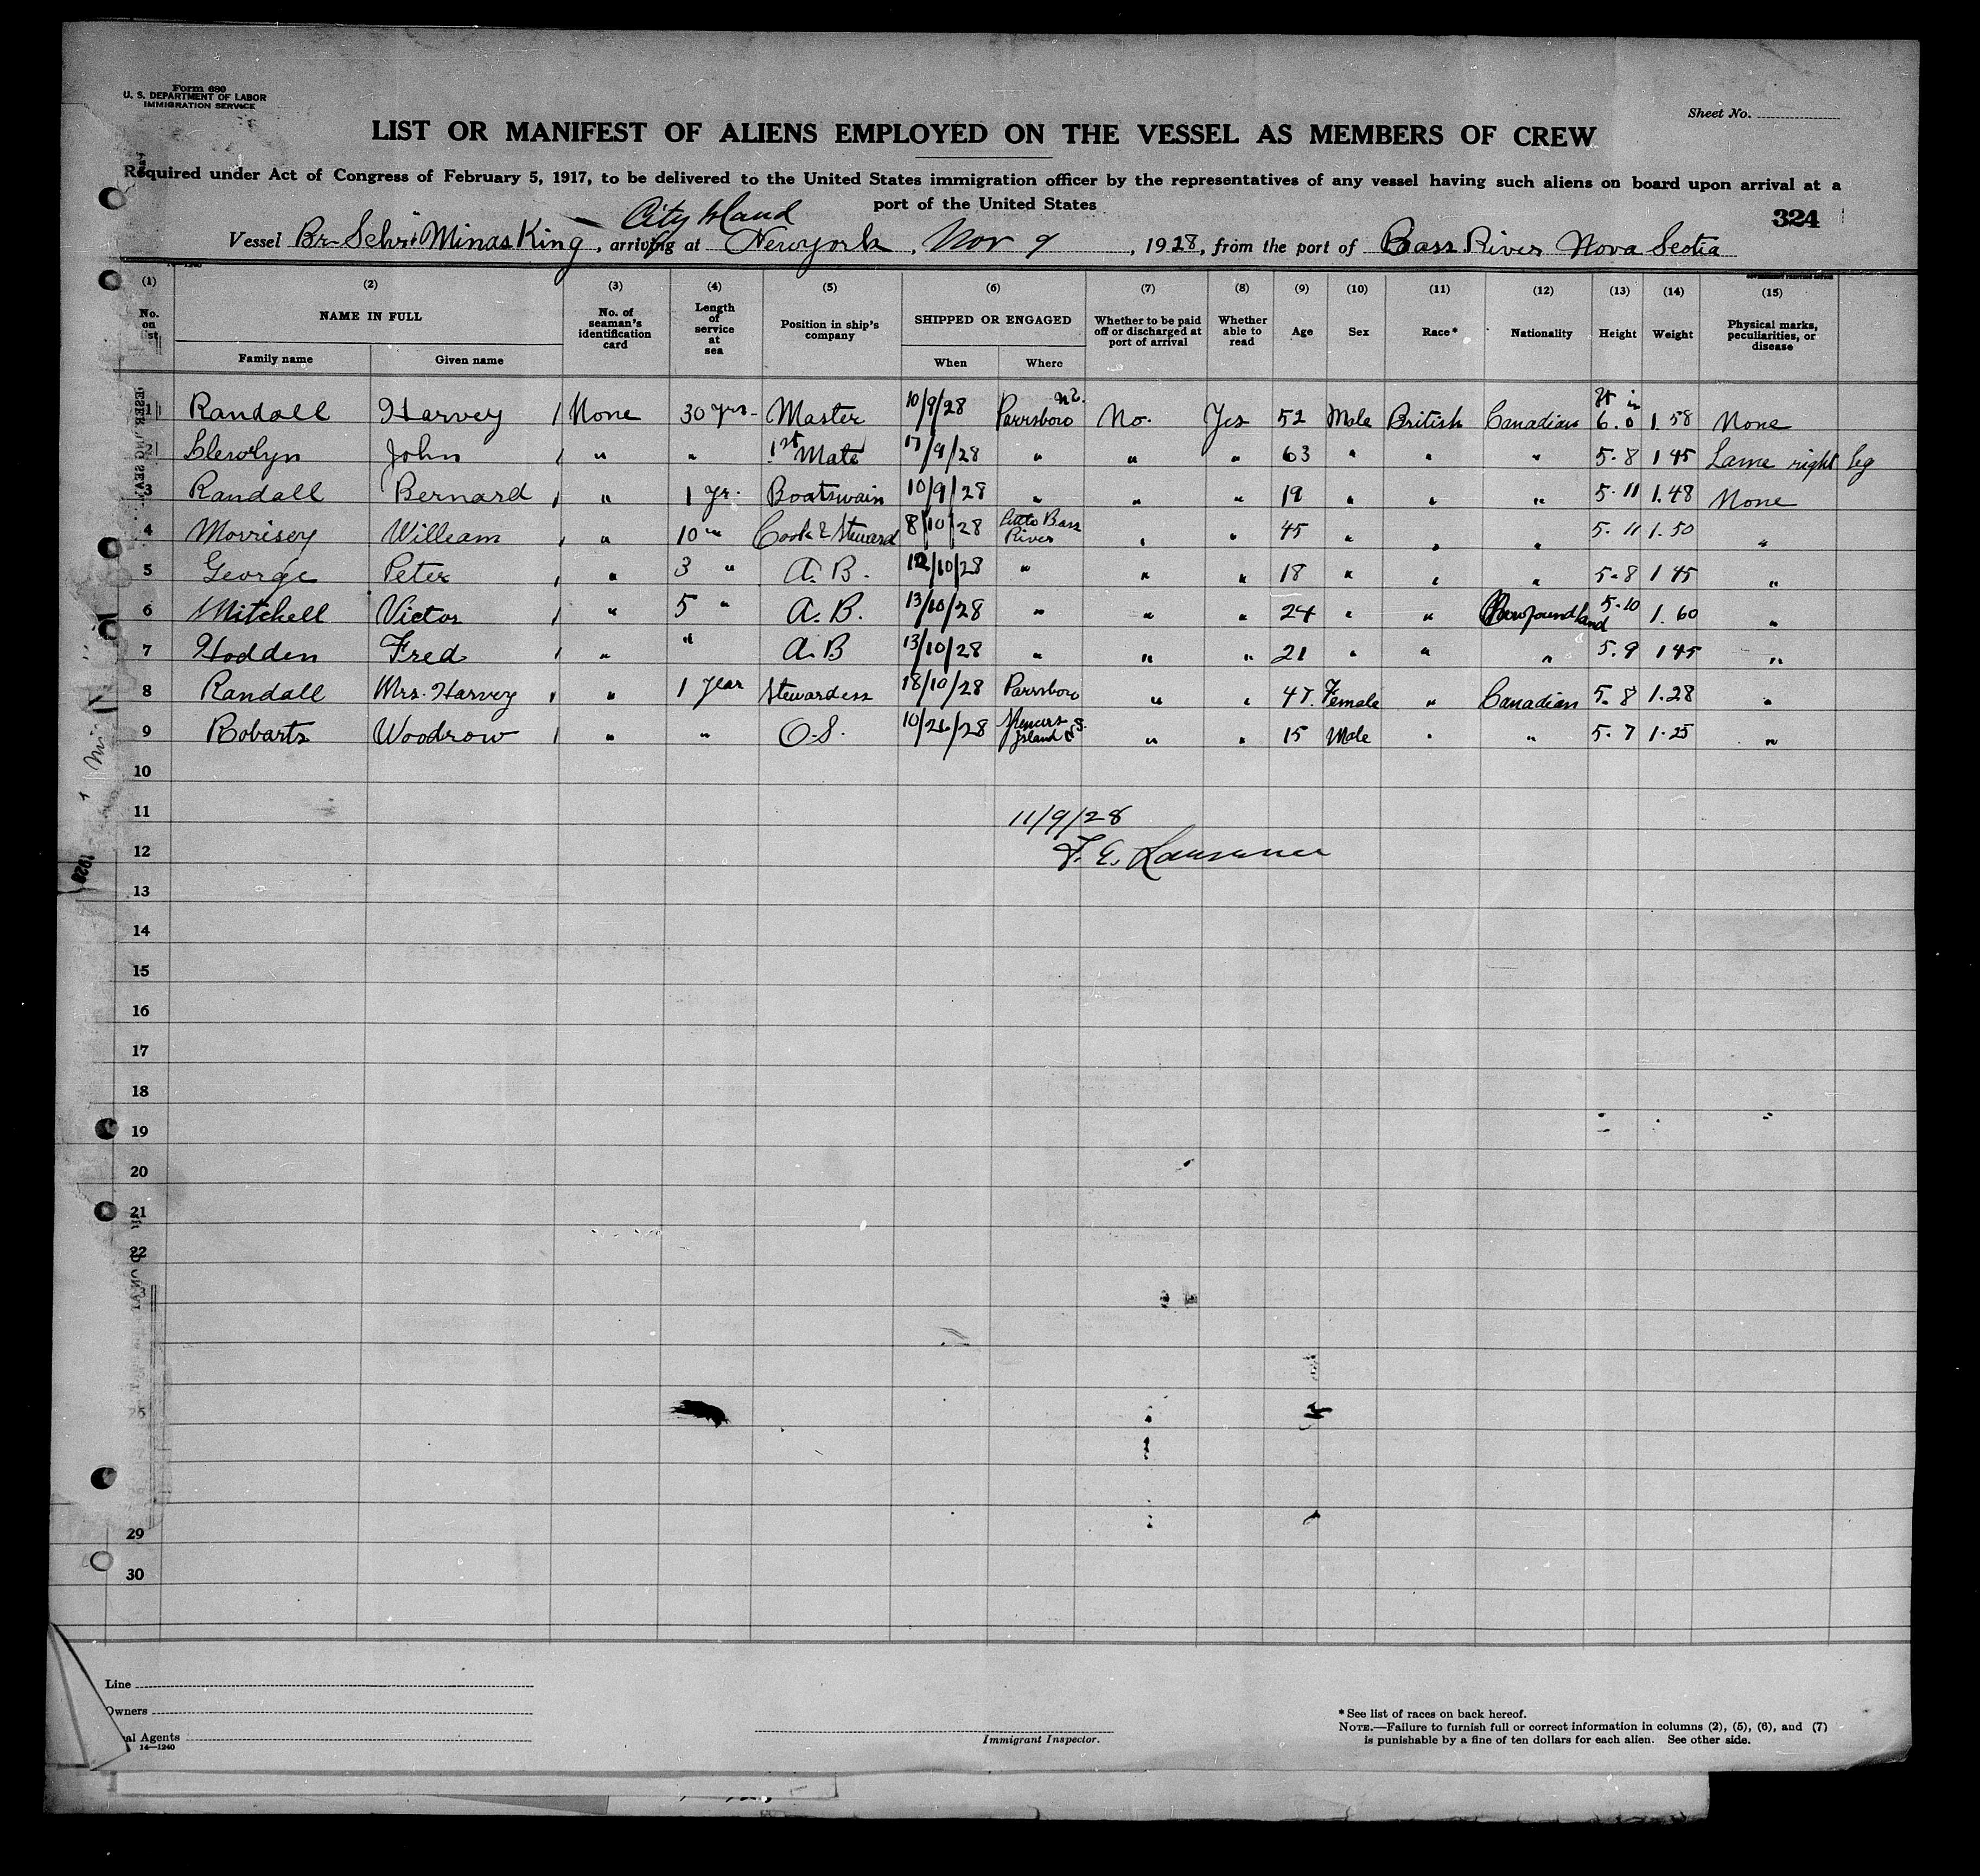 Form 680
U. S. DEPARTMENT OF LABOR
IMMIGRATION SERVICE
Sheet No.
LIST OR MANIFEST OF ALIENS EMPLOYED ON THE VESSEL AS MEMBERS OF CREW
Required under Act of Congress of February 5, 1917, to be delivered to the United States immigration officer by the representatives of any vessel having such aliens on board upon arrival at a
port of the United States
324
City Island
Vessel Br Schr Minas King, arriving at New york, Nov 9, 1928, from the port of Bass River Nova Scotia
(1) (2) (3) (4) (5) (6) (7) (8) (9) (10) (11) (12) (13) (14) (15)
No. on list NAME IN FULL No. of seaman's identification card Length of service at sea Position in ship's company SHIPPED OR ENGAGED Whether to be paid off or discharged at port of arrival Whether able to read Age Sex Race* Nationality Height Weight Physical marks, peculiarities, or disease
Family name Given name When Where
ft in
1 Randall Harvey / None 30 yrs- Master 10/9/28 Parrsboro No. Yes 52 Male British Canadian 6.0 1.58 None
2 Llewlyn John / " " 1st Mate 17/9/28 " " " 63 " " " 5-8 1 45 Lame right leg
3 Randall Bernard / " 1 yr. Boatswain 10/9/28 " " " 19 " " " 5-11 1.48 None
4 Morrisey William / " 10 " Cook & Steward 8/10/28 Little Bass River " " 45 " " " 5-11 1.50 "
5 George Peter / " 3 " A. B. 12/10/28 " " " 18 " " " 5-8 1 45 "
6 Mitchell Victor / " 5 " A. B. 13/10/28 " " " 24 " " Newfoundland 5-10 1.60 "
7 Hodden Fred / " " A. B 13/10/28 " " " 21 " " " 5.9 1 45 "
8 Randall Mrs. Harvey / " 1 year Stewardess 18/10/28 Parrsboro " " 47. Female " Canadian 5.8 1.28 "
9 Robarts Woodrow / " " O.S. 10/26/28 Spencers Island N.S. " " 15 Male " " 5.7 1.25 "
10
11
11/9/28
12
13
14
15
16
17
18
19
20
21
22
29
30
Line
Owners
14—1240
Immigrant Inspector.
* See list of races on back hereof.
NOTE.—Failure to furnish full or correct information in columns (2), (5), (6), and (7)
is punishable by a fine of ten dollars for each alien. See other side.